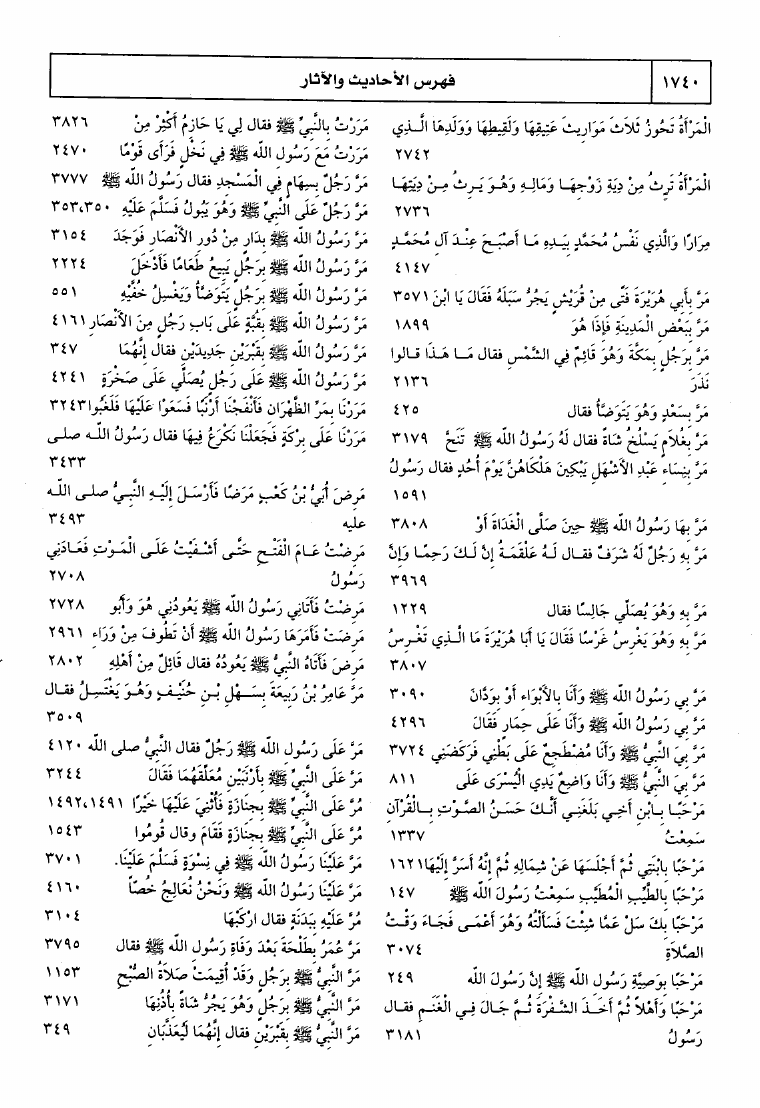 ١٧٤٠
فهرس الأحاديث والآثار
الْمَرْأَةُ تَحُوزُ ثَلَاثَ مَوَارِيثَ عَتِيقِهَا وَلَقِيطِهَا وَوَلَدِهَا الَّـذِي
٢٧٤٢
الْمَرْأَةُ تَرِثُ مِنْ دِيَةِ زَوْجِهَـا وَمَالِـهِ وَهُـوَ يَـرِثُ مِـنْ دِيَتِهَـا
٢٧٣٦
مِرَارًا وَالَّذِي نَفْسُ مُحَمَّدٍ بِيَـدِهِ مَـا أَصْبَـحَ عِنْـدَ آلِ مُحَمَّـدٍ
٤١٤٧
مَرَّ بِأَبِي هُرَيْرَةَ فَتًى مِنْ قُرَيْشٍ يَجُرُّ سَبَلَهُ فَقَالَ يَا ابْنَ ٣٥٧١
مَرَّ بِبَعْضِ الْمَدِينَةِ فَإِذَا هُوَ ١٨٩٩
مَرَّ بِرَجُلٍ بِمَكَّةَ وَهُوَ قَائِمٌ فِي الشَّمْسِ فقال مَـا هَـذَا قـالوا
نَذَرَ ٢١٣٦
مَرَّ بِسَعْدٍ وَهُوَ يَتَوَضَّأُ فقال ٤٢٥
مَرَّ بِغُلَامٍ يَسْلُخُ شَاةً فقال لَهُ رَسُولُ اللَّه ﷺ تَنَحَّ ٣١٧٩
مَرَّ بِنِسَاءِ عَبْدِ الْأَشْهَلِ يَبْكِينَ هَلْكَاهُنَّ يَوْمَ أُحُدٍ فقال رَسُولُ
١٥٩١
مَرَّ بِهَا رَسُولُ اللَّه ﷺ حِينَ صَلَّى الْغَدَاةَ أَوْ ٣٨٠٨
مَرَّ بِهِ رَجُلٌ لَهُ شَرَفٌ فقـال لَـهُ عَلْقَمَـةُ إِنَّ لَـكَ رَحِمًـا وَإِنَّ
٣٩٦٩
مَرَّ بِهِ وَهُوَ يُصَلِّي جَالِسًا فقال ١٢٢٩
مَرَّ بِهِ وَهُوَ يَغْرِسُ غَرْسًا فَقَالَ يَا أَبَا هُرَيْرَةَ مَا الَّـذِي تَغْـرِسُ
٣٨٠٧
مَرَّ بِي رَسُولُ اللَّه ﷺ وَأَنَا بِالْأَبْوَاءِ أَوْ بِوَدَّانَ ٣٠٩٠
مَرَّ بِي رَسُولُ اللَّه ﷺ وَأَنَا عَلَى حِمَارٍ فَقَالَ ٤٢٩٦
مَرَّ بِيَ النَّبِيُّ ﷺ وَأَنَا مُضْطَجِعٌ عَلَى بَطْنِي فَرَكَضَنِي ٣٧٢٤
مَرَّ بِيَ النَّبِيُّ ﷺ وَأَنَا وَاضِعٌ يَدِي الْيُسْرَى عَلَى ٨١١
مَرْحَبًـا بِـابْنِ أَخِـي بَلَغَنِـي أَنَّـكَ حَسَـنُ الصَّـوْتِ بِـالْقُرْآنِ
سَمِعْتُ ١٣٣٧
مَرْحَبًا بِابْنَتِي ثُمَّ أَجْلَسَهَا عَنْ شِمَالِهِ ثُمَّ إِنَّهُ أَسَرَّ إِلَيْهَا ١٦٢١
مَرْحَبًا بِالطَّيِّبِ الْمُطَيَّبِ سَمِعْتُ رَسُولَ اللَّه ﷺ ١٤٧
مَرْحَبًا بِكَ سَلْ عَمَّا شِئْتَ فَسَأَلْتُهُ وَهُوَ أَعْمَـى فَجَـاءَ وَقْـتُ
الصَّلَاةِ ٣٠٧٤
مَرْحَبًا بِوَصِيَّةِ رَسُولِ اللَّه ﷺ إِنَّ رَسُولَ اللَّه ٢٤٩
مَرْحَبًا وَأَهْلاً ثُمَّ أَخَـذَ الشَّفْرَةَ ثُـمَّ جَالَ فِـي الْغَنَـمِ فقـال
رَسُولُ ٣١٨١
مَرَرْتُ بِالنَّبِيِّ ﷺ فقال لِي يَا حَازِمُ أَكْثِرْ مِنْ ٣٨٢٦
مَرَرْتُ مَعَ رَسُولِ اللَّه ﷺ فِي نَخْلٍ فَرَأَى قَوْمًا ٢٤٧٠
مَرَّ رَجُلٌ بِسِهَامٍ فِي الْمَسْجِدِ فقال رَسُولُ اللَّه ﷺ ٣٧٧٧
مَرَّ رَجُلٌ عَلَى النَّبِيِّ ﷺ وَهُوَ يَبُولُ فَسَلَّمَ عَلَيْهِ ٣٥٠، ٣٥٣
مَرَّ رَسُولُ اللَّه ﷺ بِدَارٍ مِنْ دُورِ الْأَنْصَارِ فَوَجَدَ ٣١٥٤
مَرَّ رَسُولُ اللَّه ﷺ بِرَجُلٍ يَبِيعُ طَعَامًا فَأَدْخَلَ ٢٢٢٤
مَرَّ رَسُولُ اللَّه ﷺ بِرَجُلٍ يَتَوَضَّأُ وَيَغْسِلُ خُفَّيْهِ ٥٥١
مَرَّ رَسُولُ اللَّه ﷺ بِقُبَّةٍ عَلَى بَابِ رَجُلٍ مِنَ الْأَنْصَارِ ٤١٦١
مَرَّ رَسُولُ اللَّه ﷺ بِقَبْرَيْنِ جَدِيدَيْنِ فقال إِنَّهُمَا ٣٤٧
مَرَّ رَسُولُ اللَّه ﷺ عَلَى رَجُلٍ يُصَلِّي عَلَى صَخْرَةٍ ٤٢٤١
مَرَرْنَا بِمَرِّ الظَّهْرَانِ فَأَنْفَجْنَا أَرْنَبًا فَسَعَوْا عَلَيْهَا فَلَغَبُوا ٣٢٤٣
مَرَرْنَا عَلَى بِرْكَةٍ فَجَعَلْنَا نَكْرَعُ فِيهَا فقال رَسُولُ اللَّـه صلـى
٣٤٣٣
مَرِضَ أُبَيُّ بْنُ كَعْبٍ مَرَضًا فَأَرْسَـلَ إِلَيْـهِ النَّبِـيُّ صلـى اللَّـه
عليه ٣٤٩٣
مَرِضْتُ عَـامَ الْفَتْـحِ حَتَّـى أَشْـفَيْتُ عَلَـى الْمَـوْتِ فَعَـادَنِي
رَسُولُ ٢٧٠٨
مَرِضْتُ فَأَتَانِي رَسُولُ اللَّه ﷺ يَعُودُنِي هُوَ وَأَبُو ٢٧٢٨
مَرِضَتْ فَأَمَرَهَا رَسُولُ اللَّه ﷺ أَنْ تَطُوفَ مِنْ وَرَاءِ ٢٩٦١
مَرِضَ فَأَتَاهُ النَّبِيُّ ﷺ يَعُودُهُ فقال قَائِلٌ مِنْ أَهْلِهِ ٢٨٠٢
مَرَّ عَامِرُ بْنُ رَبِيعَةَ بِسَـهْلِ بْـنِ حُنَيْـفٍ وَهُـوَ يَغْتَسِـلُ فقـال
٣٥٠٩
مَرَّ عَلَى رَسُولِ اللَّه ﷺ رَجُلٌ فقال النَّبِيُّ صلى اللَّه ٤١٢٠
مَرَّ عَلَى النَّبِيِّ ﷺ بِأَرْنَبَيْنِ مُعَلِّقَهُمَا فَقَالَ ٣٢٤٤
مُرَّ عَلَى النَّبِيِّ ﷺ بِجِنَازَةٍ فَأُثْنِيَ عَلَيْهَا خَيْرًا ١٤٩١، ١٤٩٢
مُرَّ عَلَى النَّبِيِّ ﷺ بِجِنَازَةٍ فَقَامَ وقال قُومُوا ١٥٤٣
مَرَّ عَلَيْنَا رَسُولُ اللَّه ﷺ فِي نِسْوَةٍ فَسَلَّمَ عَلَيْنَا. ٣٧٠١
مَرَّ عَلَيْنَا رَسُولُ اللَّه ﷺ وَنَحْنُ نُعَالِجُ خُصًّا ٤١٦٠
مُرَّ عَلَيْهِ بِبَدَنَةٍ فقال ارْكَبْهَا ٣١٠٤
مَرَّ عُمَرُ بِطَلْحَةَ بَعْدَ وَفَاةِ رَسُولِ اللَّه ﷺ فقال ٣٧٩٥
مَرَّ النَّبِيُّ ﷺ بِرَجُلٍ وَقَدْ أُقِيمَتْ صَلَاةُ الصُّبْحِ ١١٥٣
مَرَّ النَّبِيُّ ﷺ بِرَجُلٍ وَهُوَ يَجُرُّ شَاةً بِأُذُنِهَا ٣١٧١
مَرَّ النَّبِيُّ ﷺ بِقَبْرَيْنِ فقال إِنَّهُمَا لَيُعَذَّبَانِ ٣٤٩